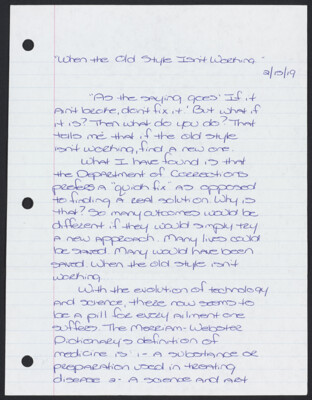 "When the Old Style Isn't Working"
2/15/19
"As the saying goes 'If it
ain't broke, don't fix it.' But what if
it is? Then what do you do? That
tells me that if the old style
isn't working, find a new one.
What I have found is that
the Department of Corrections
prefers a "quick fix" as opposed
to finding a real solution. Why is
that? So many outcomes would be
different if they would simply try
a new approach. Many lives could
be saved. Many would have been
saved. When the old style isn't
working.
With the evolution of technology
and science, there now seems to
be a pill for every ailment one
suffers. The Merriam-Webster
Dictionary's definition of
medicine is: 1- A substance or
preparation used in treating
disease 2- A science and art